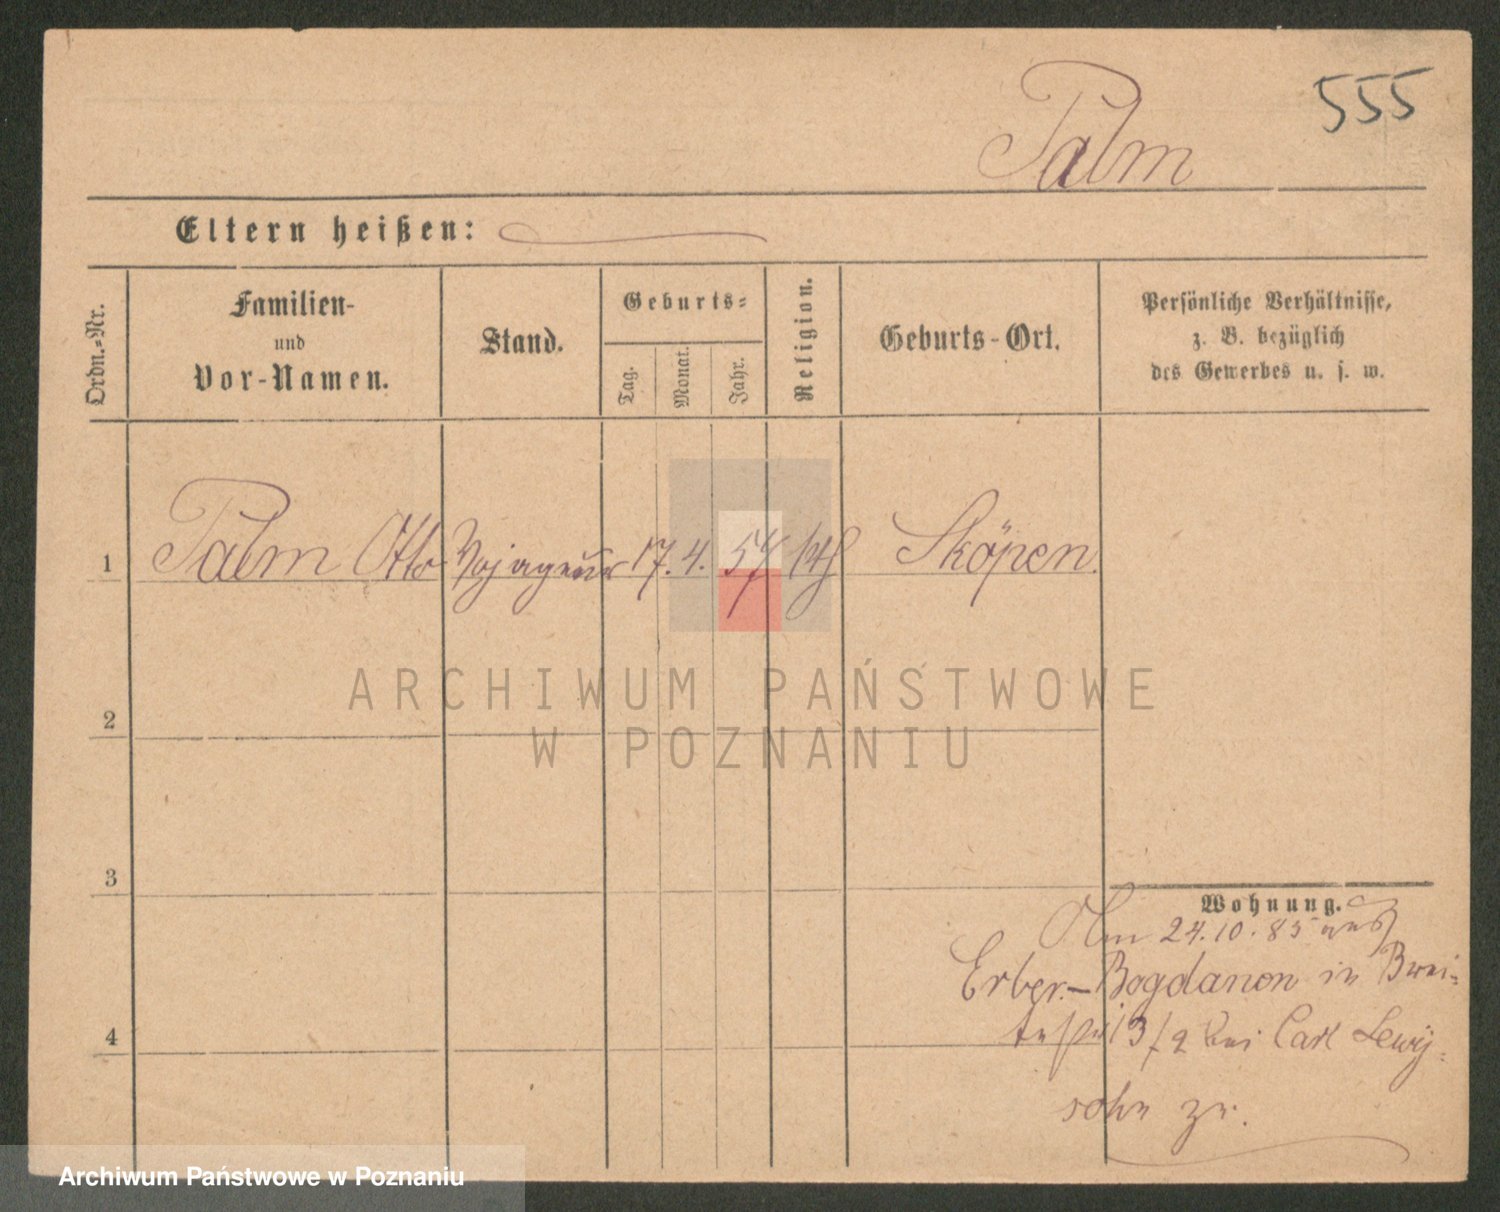 555
Palm
Eltern heißen:
Ordn.-Nr.
Familien-
und
Vor-Namen.
Stand.
Geburts-
Tag.
Monat.
Jahr.
Religion.
Geburts-Ort.
Persönliche Verhältnisse,
z. B. bezüglich
des Gewerbes u. s. w.
1 Palm Otto Vojageur 17. 4. 57 Sköpen.
ARCHIWUM PAŃSTWOWE
W POZNANIU
2
3
4
Wohnung.
Am 24.10.85 aus
Erber.-Bogdanon in Brei-
13/2 bei Carl Lewÿ-
sohn zu.
Archiwum Państwowe w Poznaniu